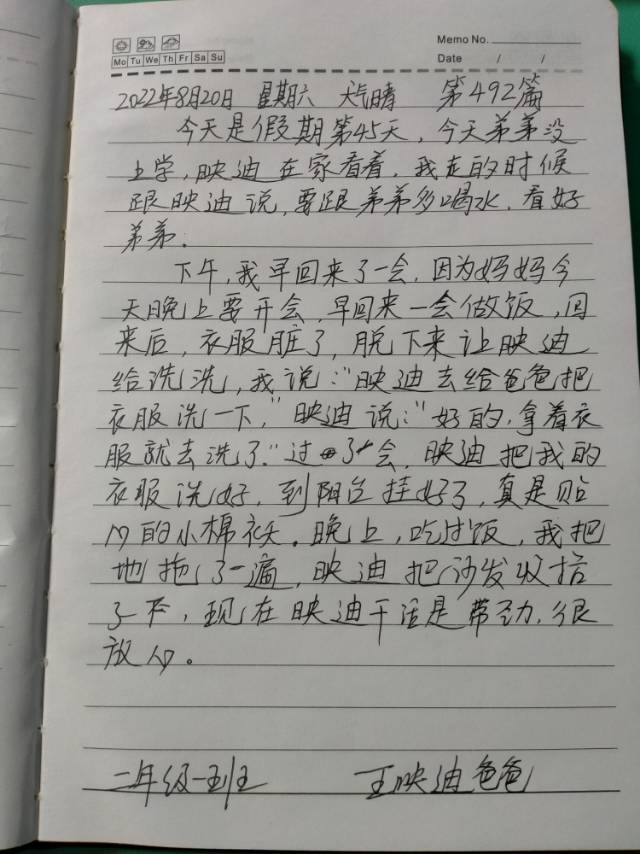 Memo No.
Mo Tu We Th Fr Sa Su
Date / /
2022年8月20日 星期六 天气晴 第492篇
今天是假期第45天，今天弟弟没
上学，映迪在家看着，我走的时候
跟映迪说，要跟弟弟多喝水，看好
弟弟。
下午，我早回来了一会，因为妈妈今
天晚上要开会，早回来一会做饭，回
来后，衣服脏了，脱下来让映迪
给洗洗，我说：“映迪去给爸爸把
衣服洗一下，”映迪说：“好的，拿着衣
服就去洗了。”过了一会，映迪把我的
衣服洗好，到阳台挂好了，真是贴
心的小棉袄。晚上，吃过饭，我把
地拖了一遍，映迪把沙发收拾
了下，现在映迪干活是带劲，很
放心。
二年级一班 王映迪爸爸